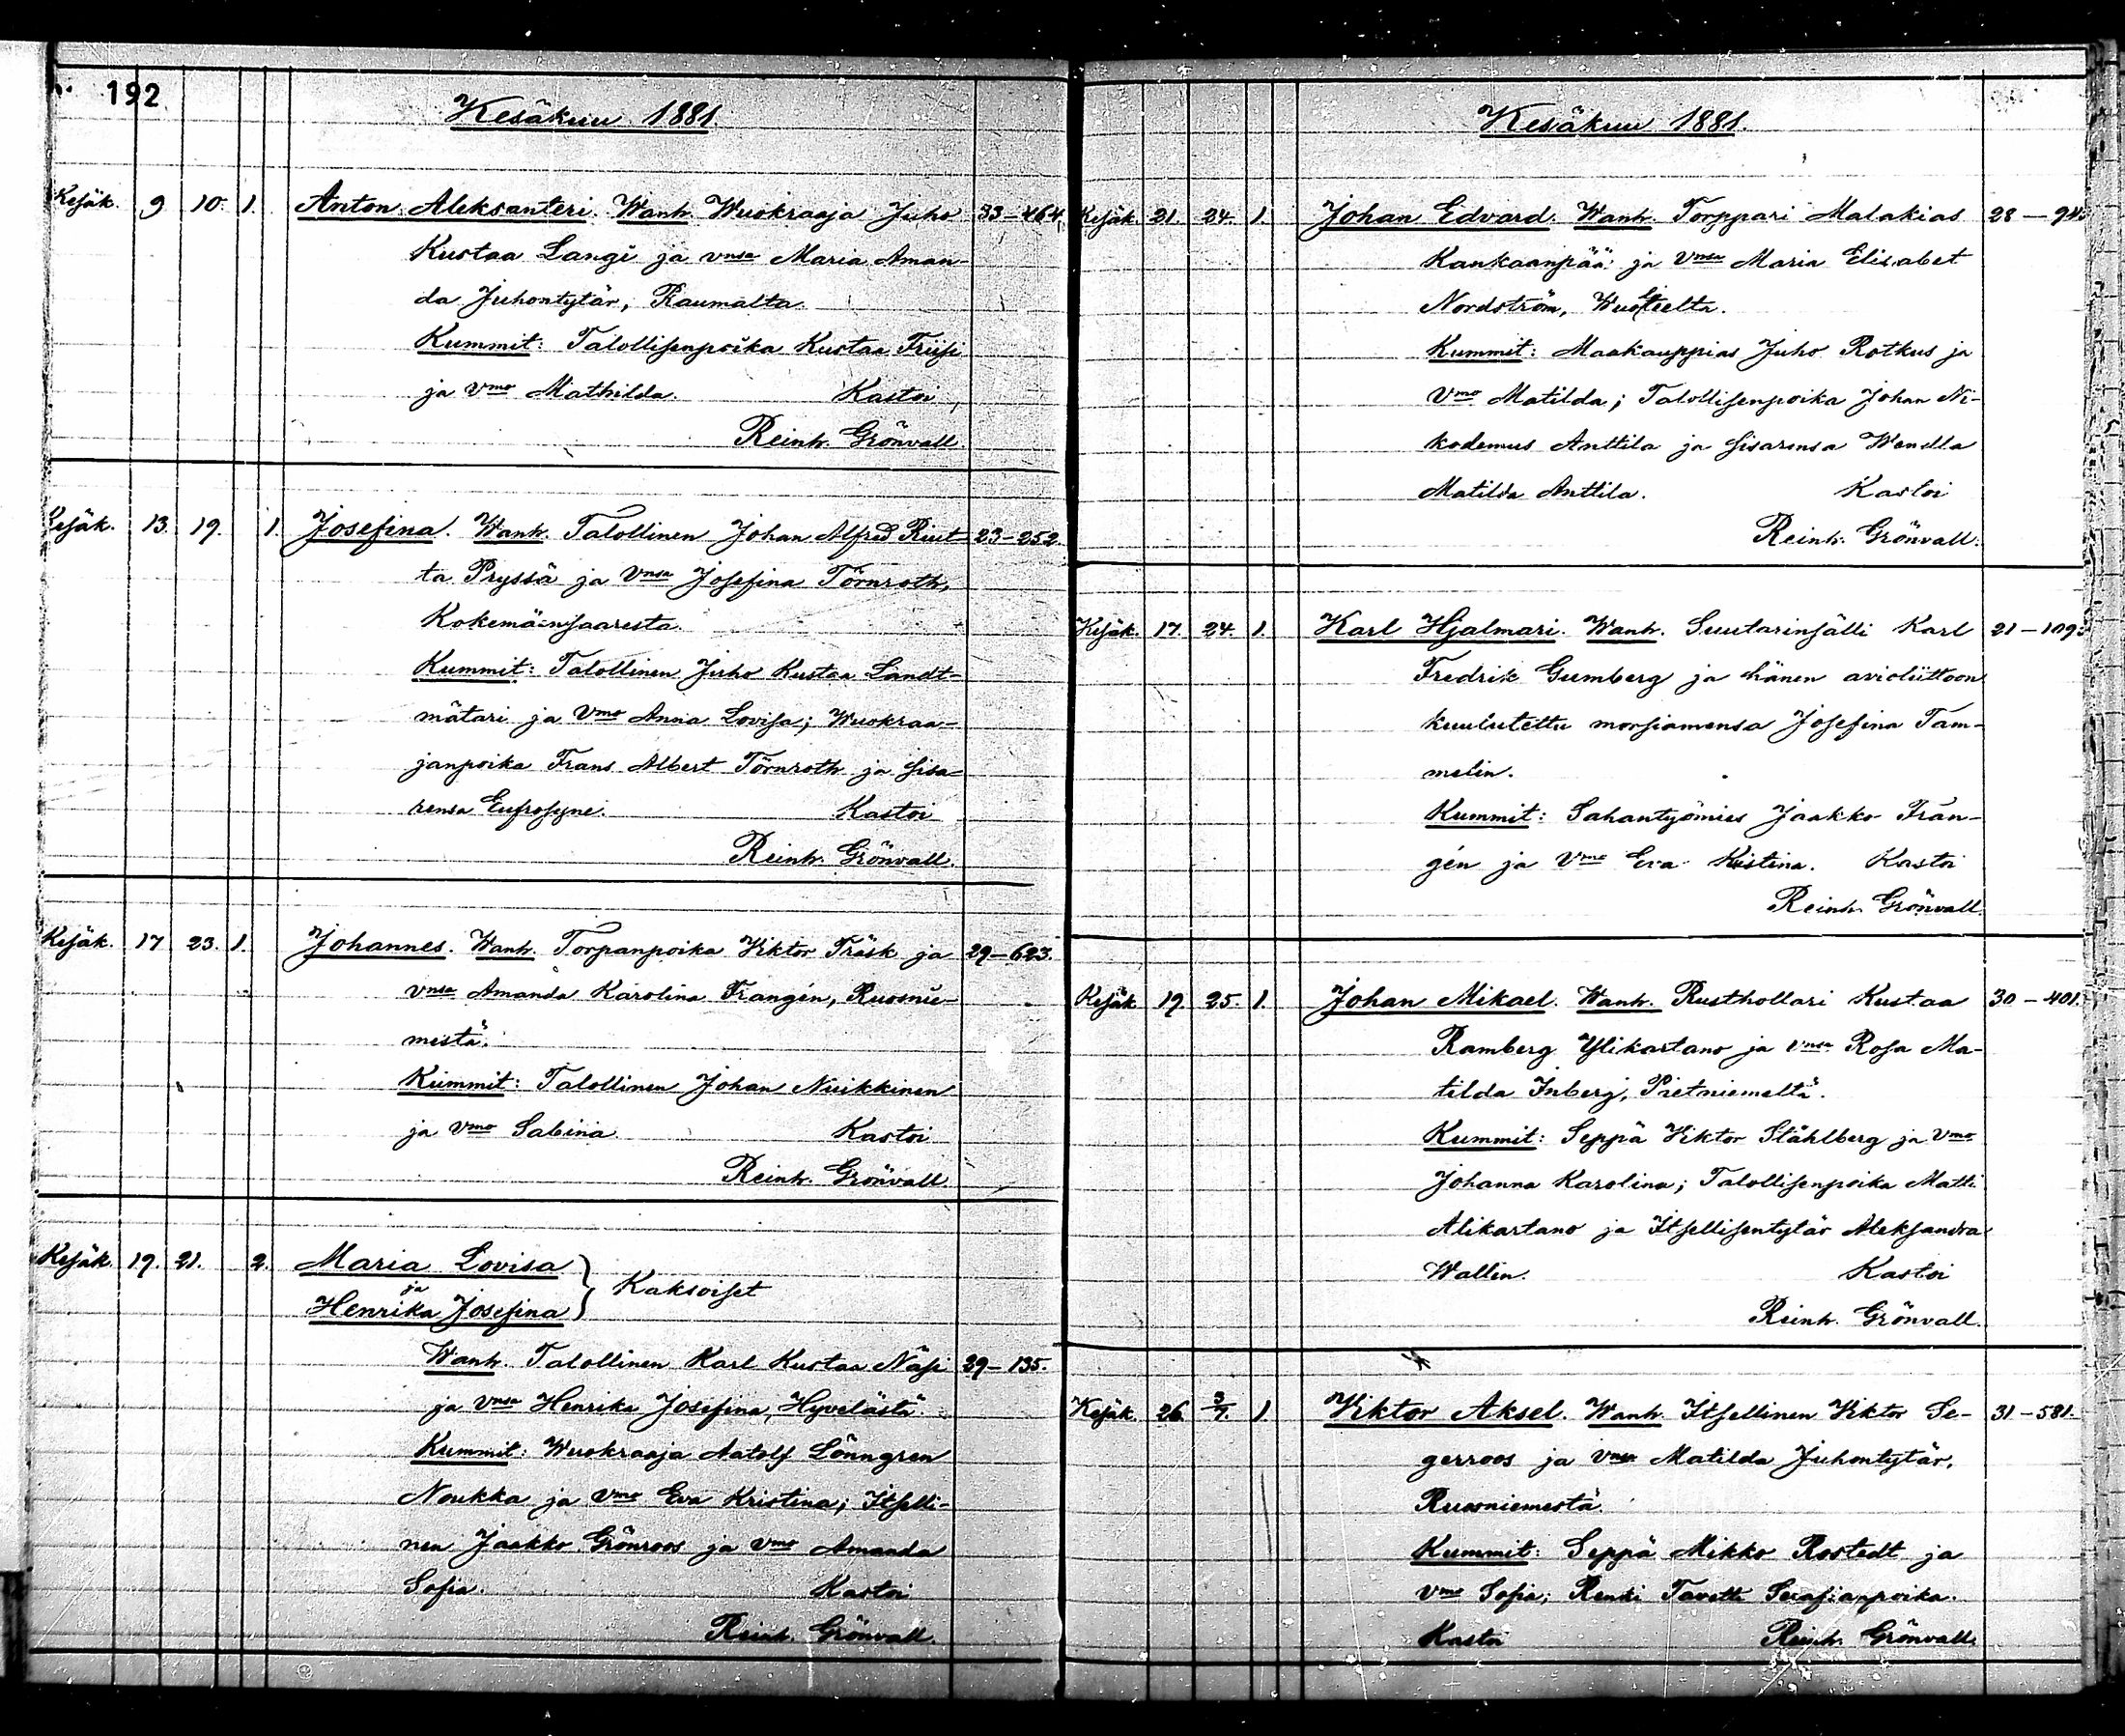 192
Kesäkuu 1881.
Kesäk. 9 10. 1. Anton Aleksanteri. Wanh. Wuokraaja Juho 33-464.
Kustaa Langi ja vmsa Maria Aman-
da Juhontytär, Raumalta.
Kummit: Talollisenpoika Kustaa Friisi
ja Vmo Mathilda. Kastoi
Reinh. Grönvall.
Kesäk. 13. 19. 1. Josefina. Wanh. Talollinen Johan Alfred Riut- 23-252.
ta Pryssä ja Vmsa Josefina Törnroth,
Kokemäinsaaresta.
Kummit: Talollinen Juho Kustaa Landt-
mätari ja Vmo Anna Lovisa; Wuokraa-
janpoika Frans Albert Törnroth ja sisa-
rensa Eufrosyne. Kastoi
Reinh. Grönvall.
Kesäk. 17 23. 1. Johannes. Wanh. Torpanpoika Viktor Träsk ja 29-623.
vmsa Amanda Karolina Frangén, Ruosnie-
mestä.
Kummit: Talollinen Johan Nuikkinen
ja Vmo Sabina. Kastoi
Reinh. Grönvall.
Kesäk. 19. 21. 2. Maria Lovisa
ja Kaksoiset
Henrika Josefina
Wanh. Talollinen Karl Kustaa Näsi 29-135.
ja Vmsa Henrika Josefina, Hyvelästä.
Kummit: Wuokraaja Aatolf Lönngren
Noukka ja Vmo Eva Kristina; Itselli-
nen Jaakko Grönroos ja Vmo Amanda
Sofia. Kastoi
Reinh. Grönvall.
Kesäkuu 1881.
Kesäk. 21. 24. 1. Johan Edvard. Wanh. Torppari Malakias 28-
Kankaanpää ja Vmsa Maria Elisabet
Nordström,
Kummit: Maakauppias Juho Rotkus ja
Vmo Matilda; Talollisenpoika Johan Ni-
kodemus Anttila ja sisarensa Wendla
Matilda Anttila. Kastoi
Reinh. Grönvall.
Kesäk. 17. 24. 1. Karl Hjalmari. Wanh. Suutarinsälli Karl 21-109.
Fredrik Gumberg ja hänen avioliittoon
kuulutettu morsiamensa Josefina Tam-
melin.
Kummit: Sahantyömies Jaakko Fran-
gén ja Vmo Eva Kristina. Kastoi
Reinh. Grönvall.
Kesäk 19. 25. 1. Johan Mikael. Wanh. Rusthollari Kustaa 30-401.
Ramberg Ylikartano ja vmsa Rosa Ma-
tilda Inberg, Pietniemeltä.
Kummit: Seppä Viktor Ståhlberg ja Vmo
Johanna Karolina; Talollisenpoika Matti
Alikartano ja Itsellisentytär Aleksandra
Wallin. Kastoi
Reinh. Grönvall.
Kesäk. 26. 3/7. 1 Viktor Aksel. Wanh. Itsellinen Viktor Se- 31-581.
gerroos ja Vmsa Matilda Juhontytär,
Ruosniemestä.
Kummit: Seppä Mikko Rostedt ja
Vmo Sofia; Renki Tavetti Serafianpoika.
Kastoi Reinh. Grönvall.